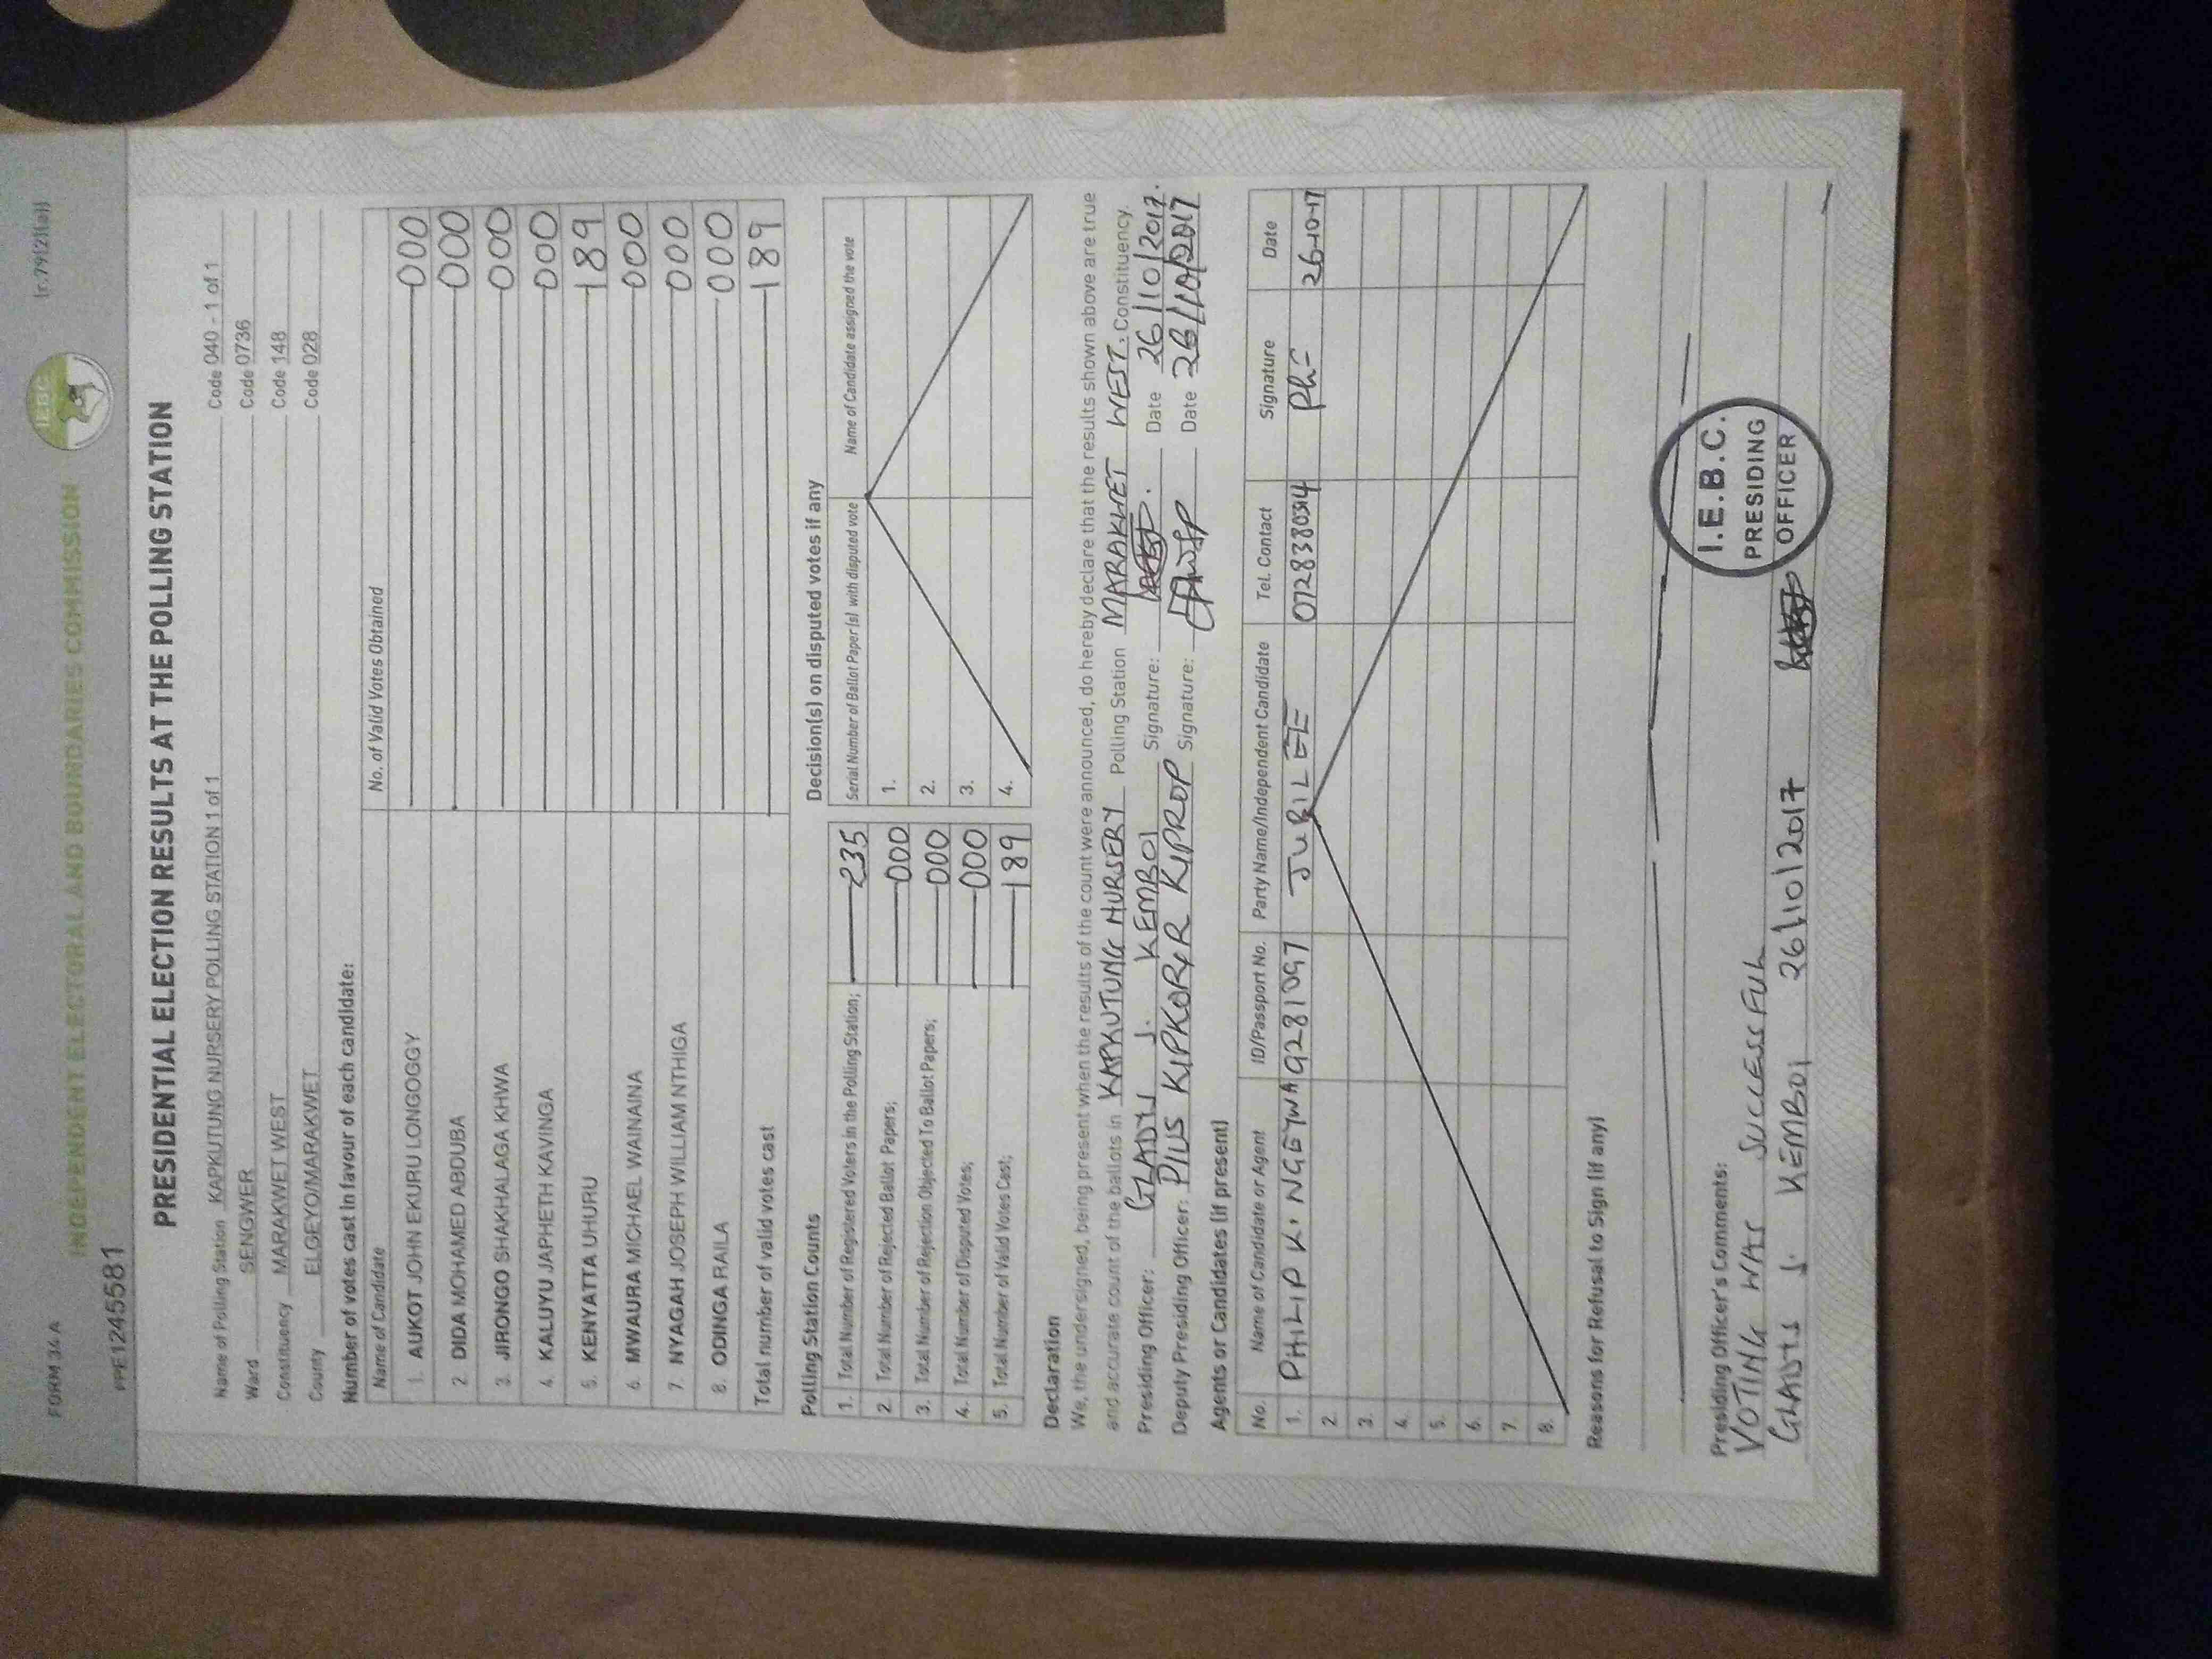 FORM 34 A (r.79(2)(a))
INDEPENDENT ELECTORAL AND BOUNDARIES COMMISSION IEBC
PRE1245581
PRESIDENTIAL ELECTION RESULTS AT THE POLLING STATION
Name of Polling Station KAPKUTUNG NURSERY POLLING STATION 1 of 1 Code 040 - 1 of 1
Ward SENGWER Code 0736
Constituency MARAKWET WEST Code 148
County ELGEYO/MARAKWET Code 028
Number of votes cast in favour of each candidate:
Name of Candidate No. of Valid Votes Obtained
1. AUKOT JOHN EKURU LONGOGGY 000
2. DIDA MOHAMED ABDUBA 000
3. JIRONGO SHAKHALAGA KHWA 000
4. KALUYU JAPHETH KAVINGA 000
5. KENYATTA UHURU 189
6. MWAURA MICHAEL WAINAINA 000
7. NYAGAH JOSEPH WILLIAM NTHIGA 000
8. ODINGA RAILA 000
Total number of valid votes cast 189
Polling Station Counts
1. Total Number of Registered Voters in the Polling Station; 235
2. Total Number of Rejected Ballot Papers; 000
3. Total Number of Rejection Objected To Ballot Papers; 000
4. Total Number of Disputed Votes; 000
5. Total Number of Valid Votes Cast; 189
Decision(s) on disputed votes if any
Serial Number of Ballot Paper (s) with disputed vote Name of Candidate assigned the vote
1.
2.
3.
4.
Declaration
We, the undersigned, being present when the results of the count were announced, do hereby declare that the results shown above are true
and accurate count of the ballots in KAPKUTUNG NURSERY Polling Station MARAKWET WEST. Constituency.
Presiding Officer: GLADYS J. KEMBOI Signature: Date 26/10/2017.
Deputy Presiding Officer: PIUS KIPKORER KIPROP Signature: Date 26/10/2017
Agents or Candidates (if present)
No. Name of Candidate or Agent ID/Passport No. Party Name/Independent Candidate Tel. Contact Signature Date
1. PHILIP K. NGEYWA 9281097 JUBILEE 26-10-17
2.
3.
4.
5.
6.
7.
8.
Reasons for Refusal to Sign (if any)
Presiding Officer's Comments:
VOTING WAS SUCCESSFUL
GLADYS J. KEMBOI 26/10/2017
I.E.B.C.
PRESIDING
OFFICER